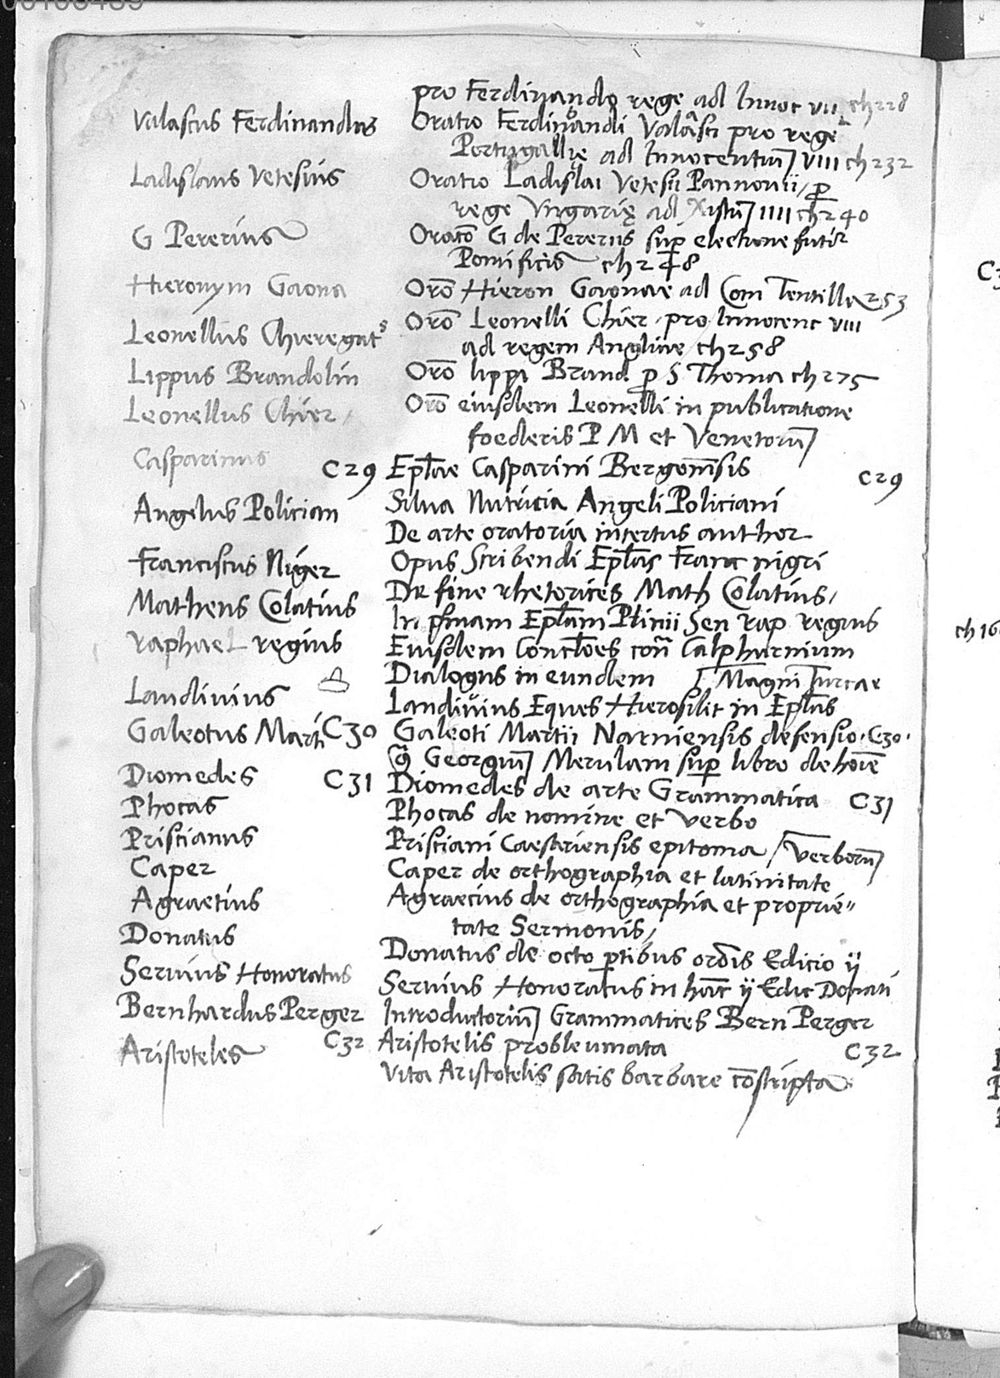 pro Ferdinando rege ad Innoc vii ch 228
Valascus Ferdinandus Oratio Ferdinandi Valasci pro rege
Portugallię ad Innocentiu VIII ch 232
Ladislaus Vetesius Oratio Ladislai Vetesii Pannonii, p̱
rege Vngarię ad Xistu IIII ch 240
G Pererius Oratō G de Pererus sup electione futir
Pontificis ch 248
Hieronym Gaona Orō Hieron Gaonae ad Com Tentilla 253
Leonellus Chieregatˢ Orō Leonelli Chier. pro Innocenc viii
ad regem Angliae ch 258
Lippus Brandolin Orō lippi Brand. p̱ S Thoma ch 275
Leonellus Chier, Orō eiusdem Leonelli in publicatione
foederis P M et Venetoru
Casparinus C 29 Epl̄ae Casparini Bergom̄sis C 29
Angelus Politian Silua Nutricia Angeli Policiani
De arte oratoria incertus author
Franciscus Niger Opus Scribendi Epl̄as Franc nigri
Matheus Colatius De fine rhetorices Math Colatius,
In pͥmam Epl̄am Plinii Sen Rap regius
Raphael regius Eiusdem Concl̄oes con̄ Calphurnium
Dialogus in eundem Magni Turcae
Laudiuius Laudiuius Eques Hierosilit in Epl̄as
Galeotus Marti C 30 Galeoti Martii Narniensis defensio. C 30.
Georgiu Merulam sup libro de hoīe
Diomedes C 31 Diomedes de arte Grammatica C 31
Phocas Phocas de nomine et verbo
Priscianus Prisciani Caesariensis epitoma / Verboru
Caper Caper de orthographia et latinitate
Agraetius Agraecius de orthographia et proprie=
tate Sermonis,
Donatus Donatus de octo p̱tibus orōis Edicio ij
Seruius Honoratus Seruius Honoratus in hāc ij Edic Donati
Bernhardus Perger Introductoriu Grammatices Bern Perger
Aristoteles C 32 Aristotelis probleumata C 32
Vita Aristotelis satis barbare cōscripta